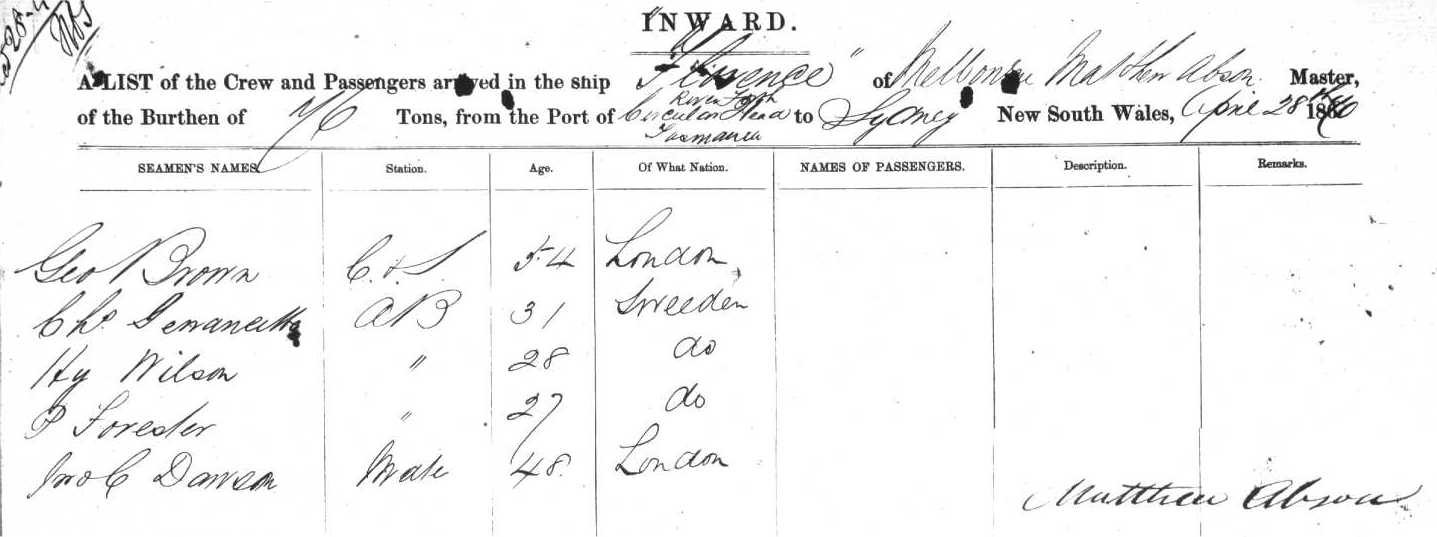 INWARD.
A LIST of the Crew and Passengers arrived in the ship "Florence" of Melbourne Matthew Abson Master,
of the Burthen of Tons, from the Port of River Forth Circular Head Tasmania to Sydney New South Wales, April 28th 18
SEAMEN'S NAMES. Station. Age. Of What Nation. NAMES OF PASSENGERS. Description. Remarks.
Geo Brown C. & S. 54 London
Chs AB 31 Sweeden
Hy Wilson " 28 do
P Forester " 27 do
Jno C Dawson Mate 48. London
Matthew Abson